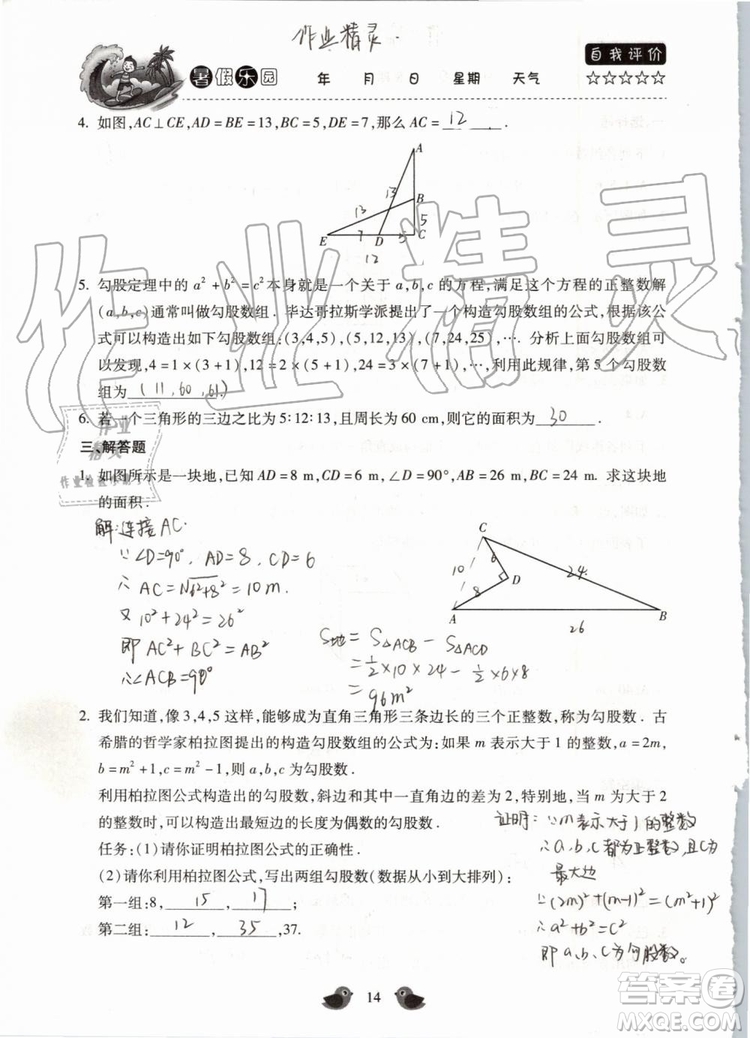 作业精灵.
暑假乐园 年 月 日 星期 天气
自我评价
☆☆☆☆☆
4. 如图,AC⊥CE,AD=BE=13,BC=5,DE=7,那么AC= 12 .
A
13
B
13
5
E 7 D 5 C
12
5. 勾股定理中的a²+b²=c²本身就是一个关于a,b,c的方程,满足这个方程的正整数解
(a,b,c)通常叫做勾股数组. 毕达哥拉斯学派提出了一个构造勾股数组的公式,根据该公
式可以构造出如下勾股数组:(3,4,5),(5,12,13),(7,24,25),…. 分析上面勾股数组可以
发现,4=1×(3+1),12=2×(5+1),24=3×(7+1),…利用此规律,第5个勾股数
组为 (11,60,61)
6. 若一个三角形的三边之比为5∶12∶13,且周长为60 cm,则它的面积为 30 .
三、解答题
1. 如图所示是一块地,已知AD=8 m,CD=6 m,∠D=90°,AB=26 m,BC=24 m. 求这块地
的面积.
解:连接AC.
∵∠D=90°, AD=8, CD=6
∴AC=√6²+8²=10m.
又10²+24²=26²
即AC²+BC²=AB²
∴∠ACB=90°
C
6
10 D 24
8
A B
26
S地=S△ACB-S△ACD
=½×10×24-½×6×8
=96m²
2. 我们知道,像3,4,5这样,能够成为直角三角形三条边长的三个正整数,称为勾股数. 古
希腊的哲学家柏拉图提出的构造勾股数组的公式为:如果m表示大于1的整数,a=2m,
b=m²-1,c=m²+1,则a,b,c为勾股数.
利用柏拉图公式构造出的勾股数,斜边和其中一直角边的差为2,特别地,当m为大于2
的整数时,可以构造出最短边的长度为偶数的勾股数.
任务:(1)请你证明柏拉图公式的正确性.
(2)请你利用柏拉图公式,写出两组勾股数(数据从小到大排列):
第一组:8, 15 , 17 ;
第二组: 12 , 35 ,37.
证明:∵m表示大于1的整数
∴a,b,c都为正整数,且c为
最大边
∵(2m)²+(m²-1)²=(m²+1)²
∴a²+b²=c²
即a,b,c为勾股数。
14
作业精灵
作业
精灵
答案圈
MXQE.COM